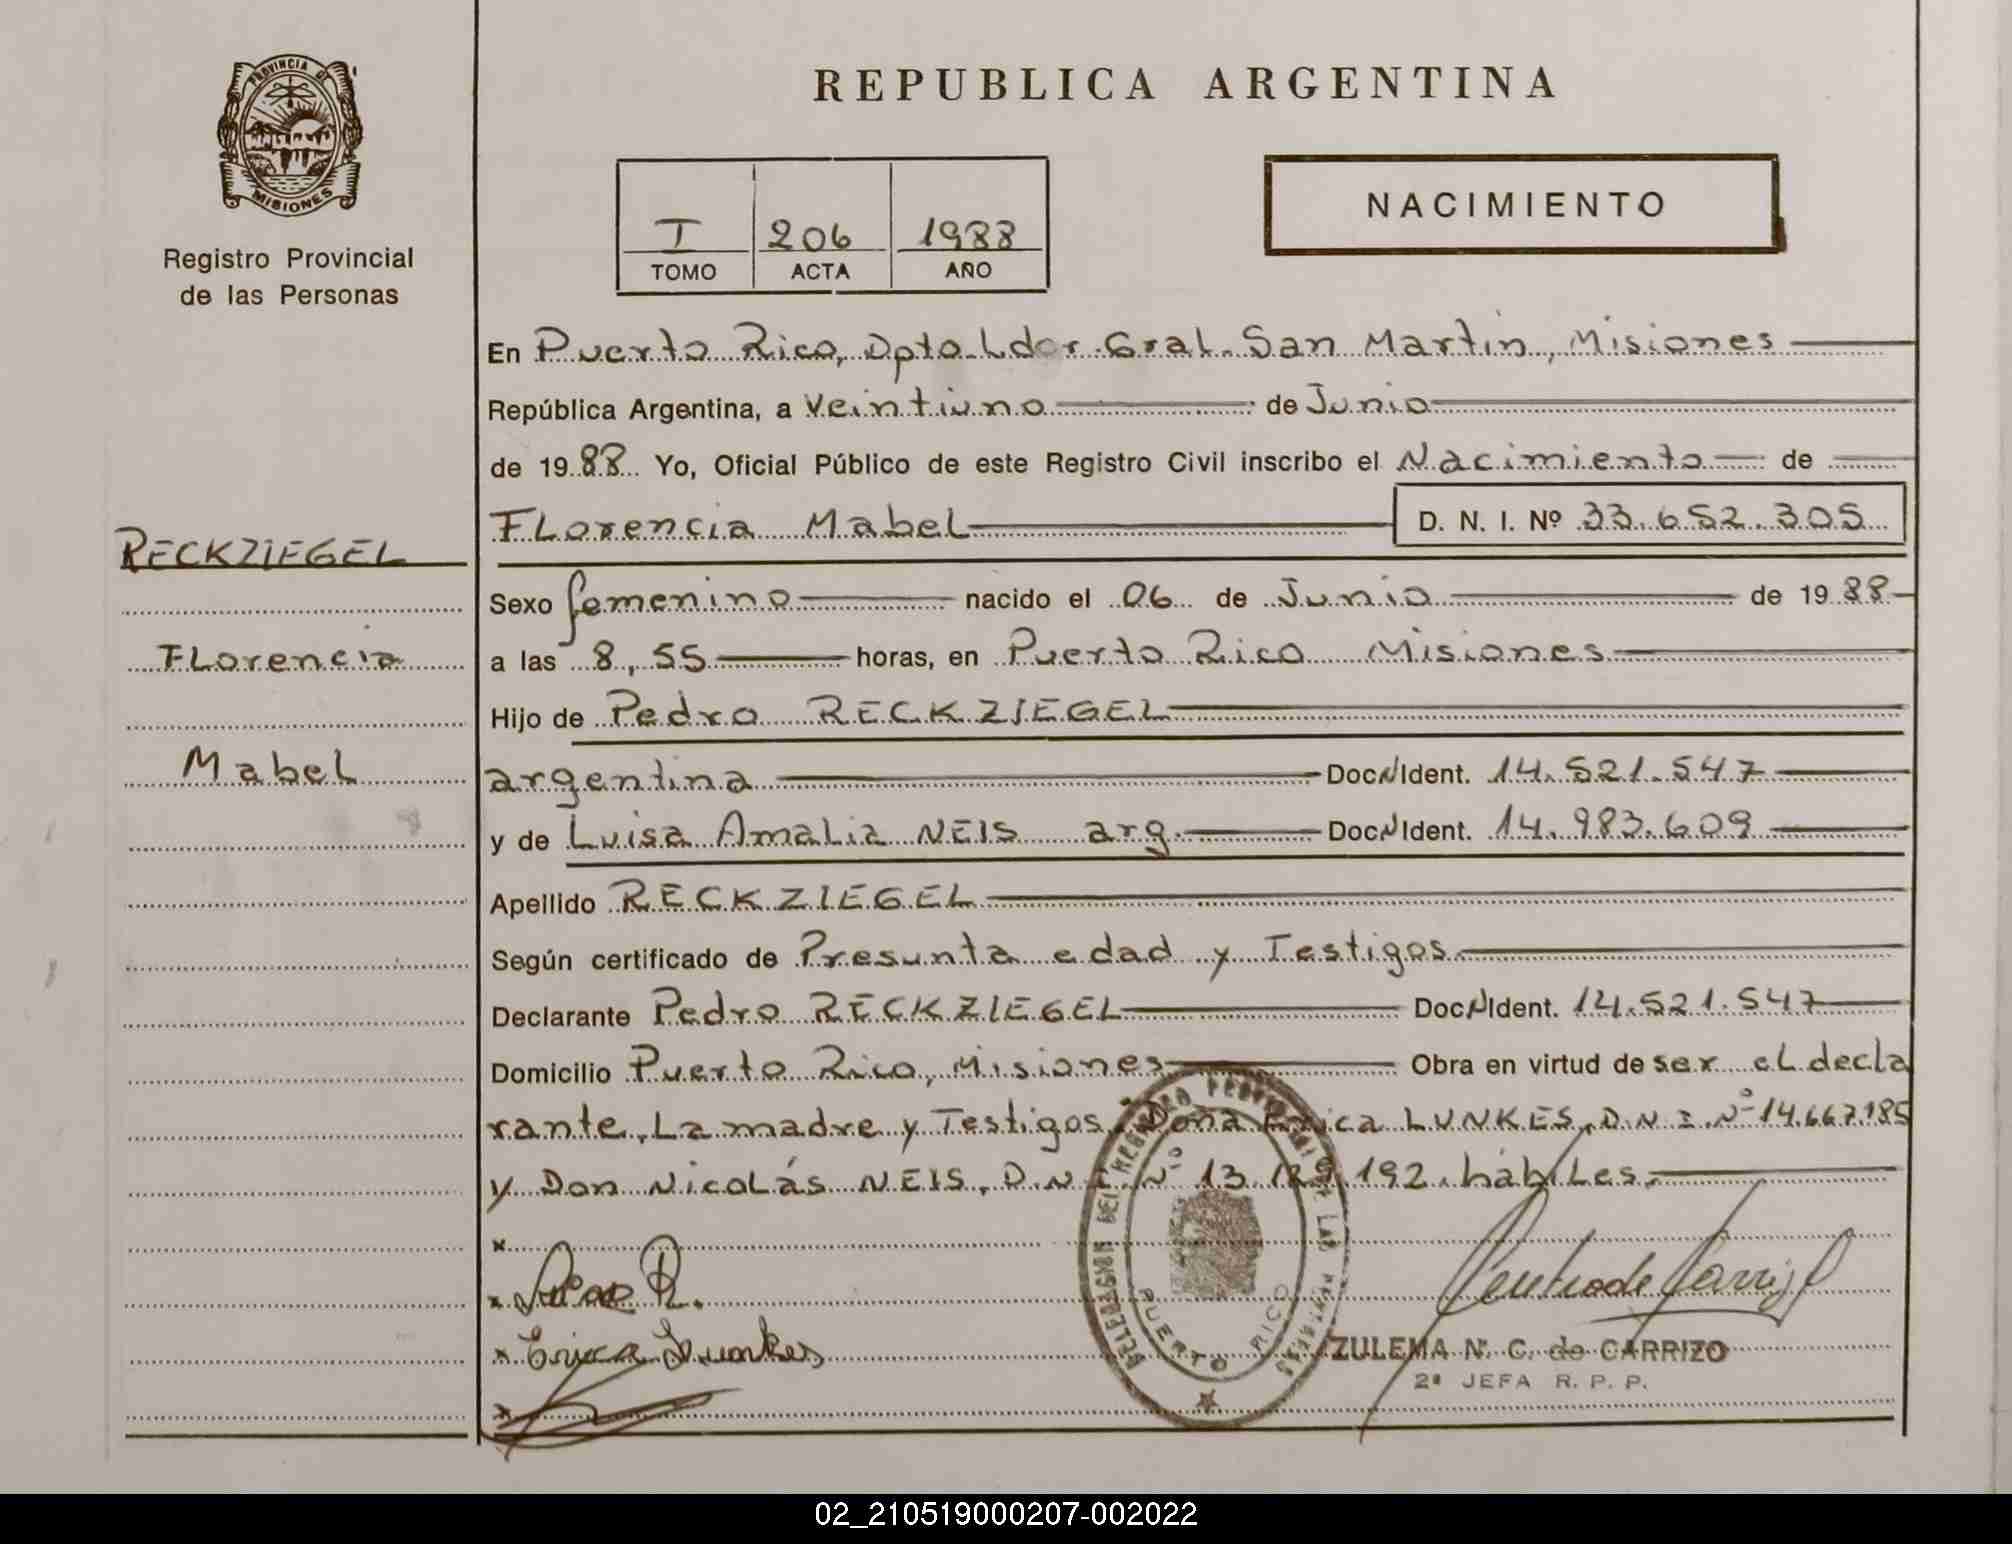 PROVINCIA DE
MISIONES
Registro Provincial
de las Personas
REPUBLICA ARGENTINA
I 206 1988
TOMO ACTA AÑO
NACIMIENTO
En Puerto Rico, Dpto. Ldor. Gral. San Martín, Misiones
República Argentina, a Veintiuno de Junio
de 1988 Yo, Oficial Público de este Registro Civil inscribo el Nacimiento de
Florencia Mabel D. N. I. Nº 33.652.305
RECKZIEGEL
Florencia
Mabel
Sexo femenino nacido el 06 de Junio de 1988
a las 8,55 horas, en Puerto Rico Misiones
Hijo de Pedro RECKZIEGEL
argentina Doc N Ident. 14.521.547
y de Luisa Amalia NEIS arg. Doc N Ident. 14.983.609
Apellido RECKZIEGEL
Según certificado de Presunta edad y Testigos
Declarante Pedro RECKZIEGEL Doc N Ident. 14.521.547
Domicilio Puerto Rico, Misiones Obra en virtud de ser el decla
rante, La madre y Testigos, Doña Erica LUNKES, D.N.I. Nº 14.667.185
y Don Nicolás NEIS, D.N.I. Nº 13.129.192. hábiles.
DELEGACION DEL REGISTRO PROVINCIAL DE LAS PERSONAS
PUERTO RICO
Erica Lunkes
ZULEMA N. C. de CARRIZO
2ª JEFA R. P. P.
02_210519000207-002022